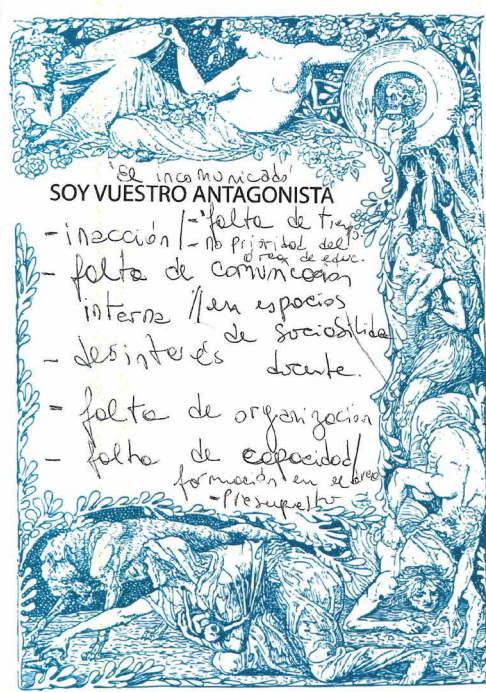 'El incomunicado'
SOY VUESTRO ANTAGONISTA
- inacción / - falta de tiempo.
- no prioridad del
área de educ.
- falta de comunicación
interna // en espacios
de sociabilidad
- desinterés docente.
- falta de organización
- falta de capacidad/
formación en el área
- Presupuesto